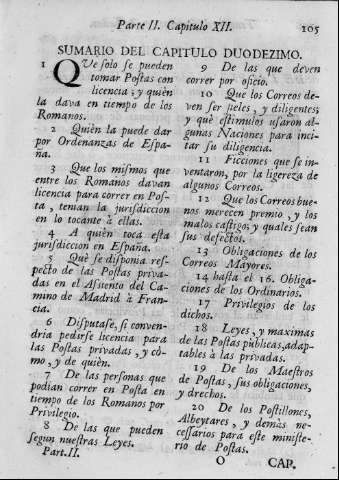 Parte II. Capitulo XII. 105
SUMARIO DEL CAPITULO DUODEZIMO.
1 QVe solo se pueden
tomar Postas con
licencia; y quièn
la dava en tiempo de los
Romanos.
2 Quièn la puede dar
por Ordenanzas de Espa-
ña.
3 Que los mismos que
entre los Romanos davan
licencia para correr en Pos-
ta, tenian la jurisdiccion
en lo tocante à ellas.
4 A quièn toca esta
jurisdiccion en España.
5 Què se disponia res-
pecto de las Postas priva-
das en el Assiento del Ca-
mino de Madrid à Fran-
cia.
6 Disputase, si conven-
dria pedirse licencia para
las Postas privadas, y cò-
mo, y de quièn.
7 De las personas que
podian correr en Posta en
tiempo de los Romanos por
Privilegio.
8 De las que pueden
segun nuestras Leyes.
Part.II.
9 De las que deven
correr por oficio.
10 Que los Correos de-
ven ser fieles, y diligentes;
y què estimulos usaron al-
gunas Naciones para inci-
tar su diligencia.
11 Ficciones que se in-
ventaron, por la ligereza de
algunos Correos.
12 Que los Correos bue-
nos merecen premio, y los
malos castigo; y quales sean
sus defectos.
13 Obligaciones de los
Correos Mayores.
14 hasta el 16. Obliga-
ciones de los Ordinarios.
17 Privilegios de los
dichos.
18 Leyes, y maximas
de las Postas publicas, adap-
tables à las privadas.
19 De los Maestros
de Postas, sus obligaciones,
y drechos.
20 De los Postillones,
Albeytares, y demàs ne-
cessarios para este ministe-
rio de Postas.
O CAP.